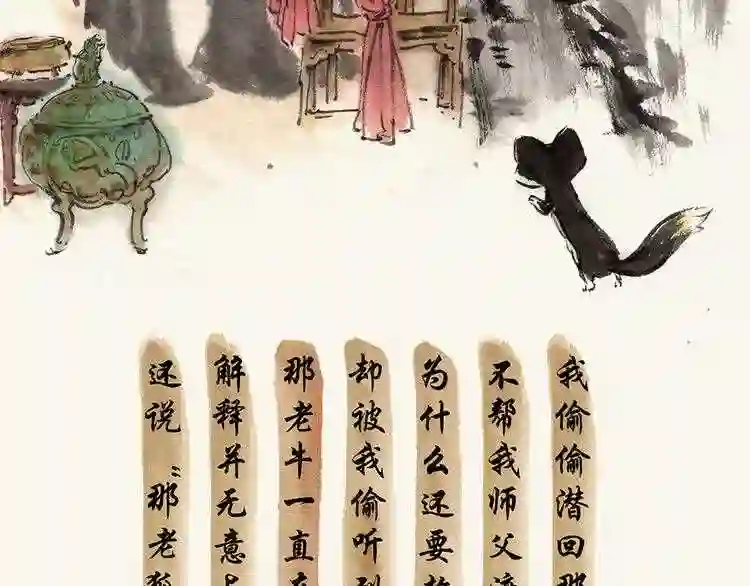 我偷偷潜回那
不帮我师父
为什么还要
却被我偷听到
那老牛一直在
解释并无意
还说“那老狐